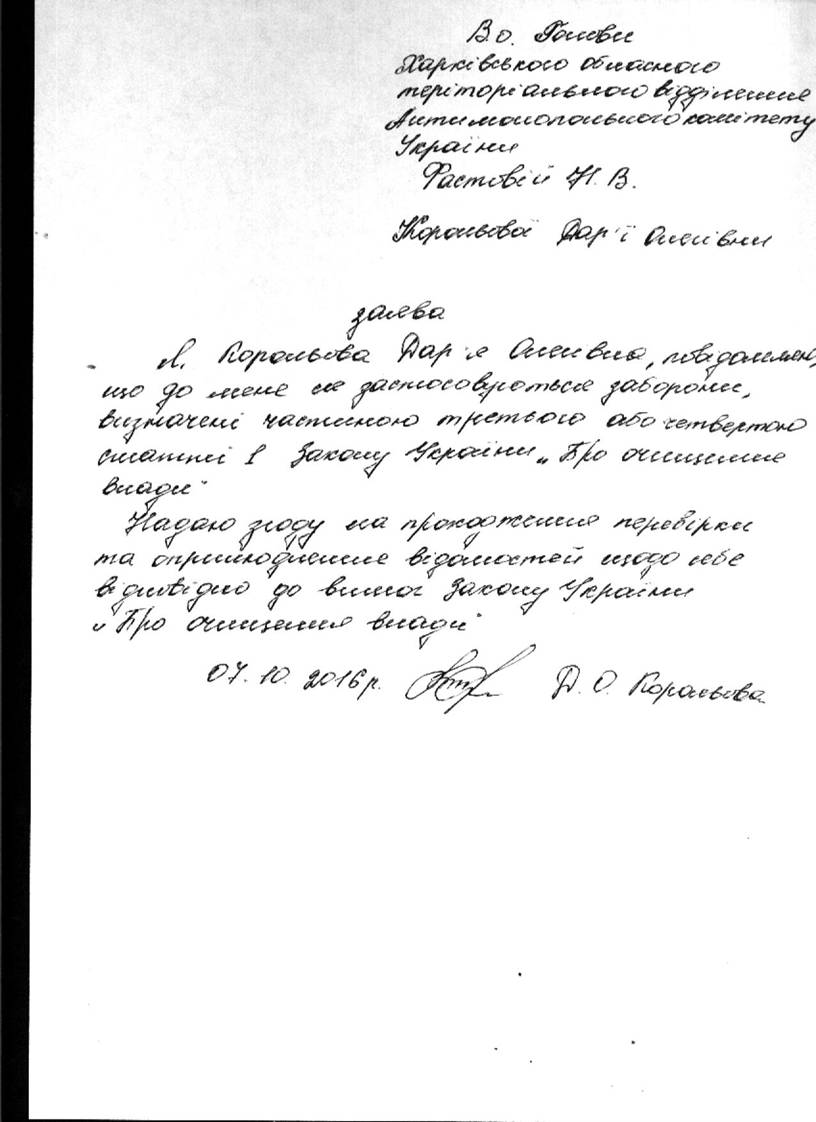 В.о. Голови
Харківського обласного
територіального відділення
Антимонопольного комітету
України
Растовій Н. В.
Корольової Дар'ї Олегівни
заява
Я, Корольова Дар'я Олегівна, повідомляю,
що до мене не застосовуються заборони,
визначені частиною третьою або четвертою
статті 1 Закону України „Про очищення
влади"
Надаю згоду на проходження перевірки
та оприлюднення відомостей щодо себе
відповідно до вимог Закону України
„Про очищення влади"
07.10.2016р. Д. О. Корольова